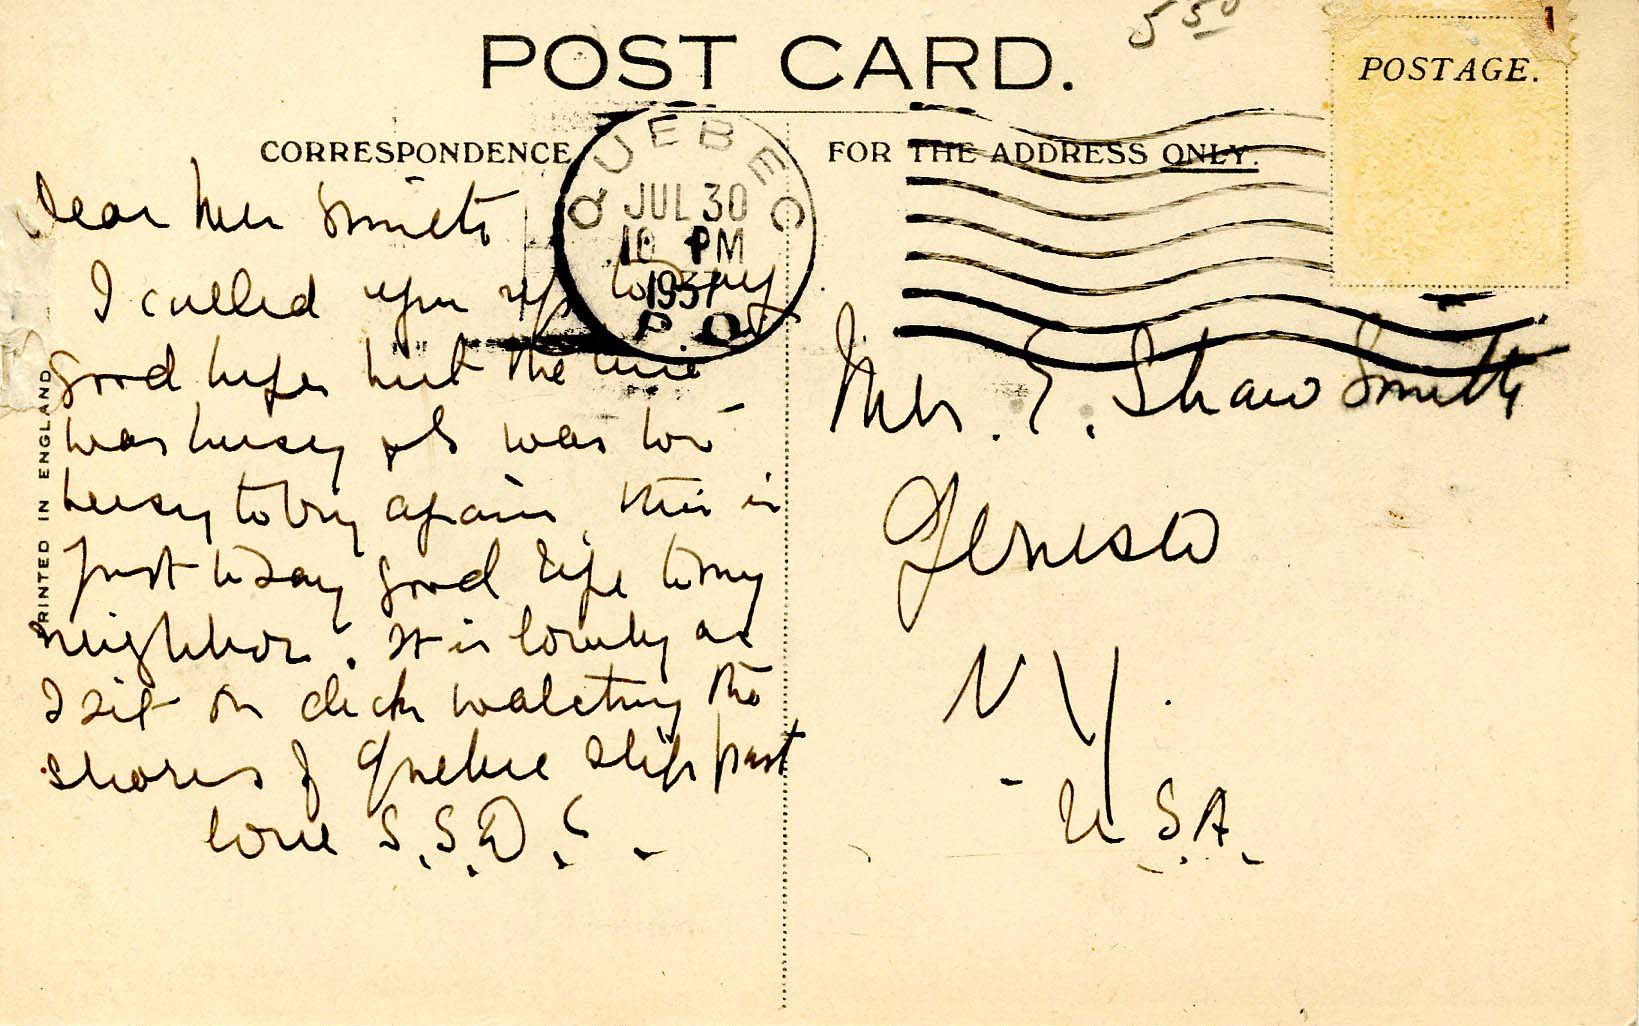 550
1
POST CARD.
POSTAGE.
CORRESPONDENCE
FOR THE ADDRESS ONLY.
QUEBEC
JUL 30
10 PM
1937
P.O
PRINTED IN ENGLAND
Dear Mrs Smith
I called you up to say
good bye but the line
was busy & I was too
busy to try again, this is
just to say good bye to my
neighbor. It is lovely as
I sit on deck watching the
shores of Quebec slip past
love S.S.D.C.
Mrs. E. Shaw Smith
Geneseo
N Y.
U.S.A.